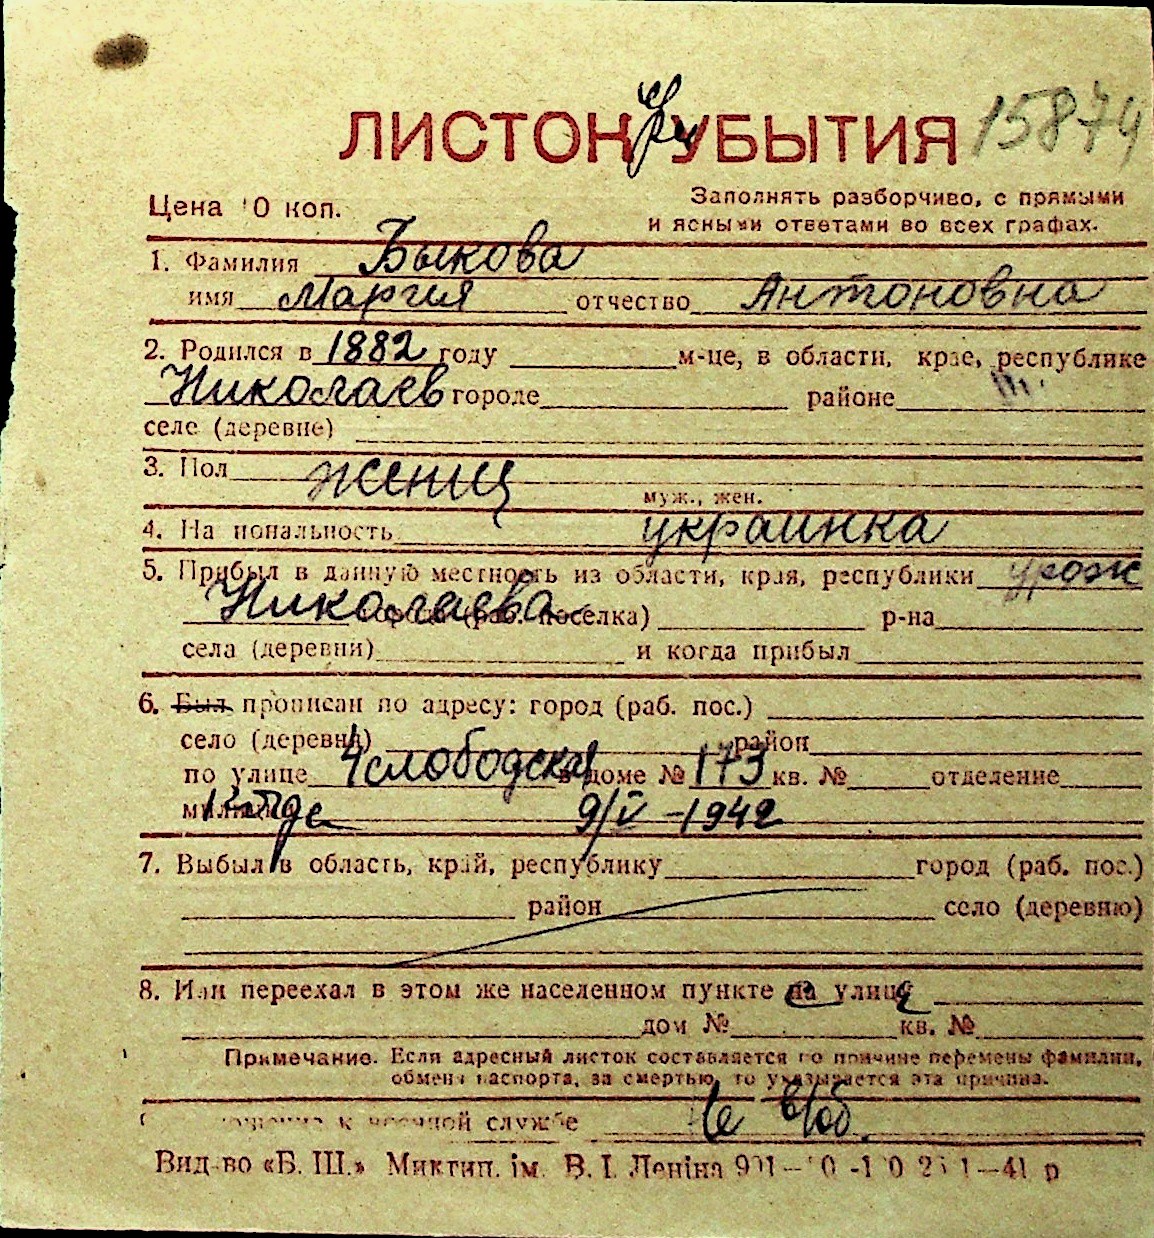 ЛИСТОК УБЫТИЯ 15874
Цена 10 коп. Заполнять разборчиво, с прямыми
и ясными ответами во всех графах.
1. Фамилия Быкова
имя Мария отчество Антоновна
2. Родился в 1882 году м-це, в области, крае, республике
Николаев городе районе
селе (деревне)
3. Пол женщ
муж., жен.
4. Национальность украинка
5. Прибыл в данную местность из области, края, республики урож
Николаева города (раб. поселка) р-на
села (деревни) и когда прибыл
6. Был прописан по адресу: город (раб. пос.)
село (деревня) район
по улице 4 слободская в доме № 173 кв. № отделение
милиции 9/V-1942
7. Выбыл в область, край, республику город (раб. пос.)
район село (деревню)
8. Или переехал в этом же населенном пункте на улицу
дом № кв. №
Примечание. Если адресный листок составляется по причине перемены фамилии,
обмена паспорта, за смертью, то указывается эта причина.
к военной службе не в/об.
Вид-во «Б. Ш.» Миктип. ім. В. І. Леніна